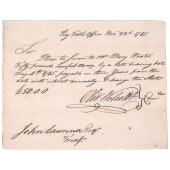 Pay Table Office Nov. 22d 1785
Sir
Please to Issue to Mrs. Mary
Fifty pounds Lawful Money by a Note bearing date
payable in three Years from the
date with interest annually & charge the State
£50.0.0
Olivr Wolcott Jr
John Lawrence Esqr
Treasr